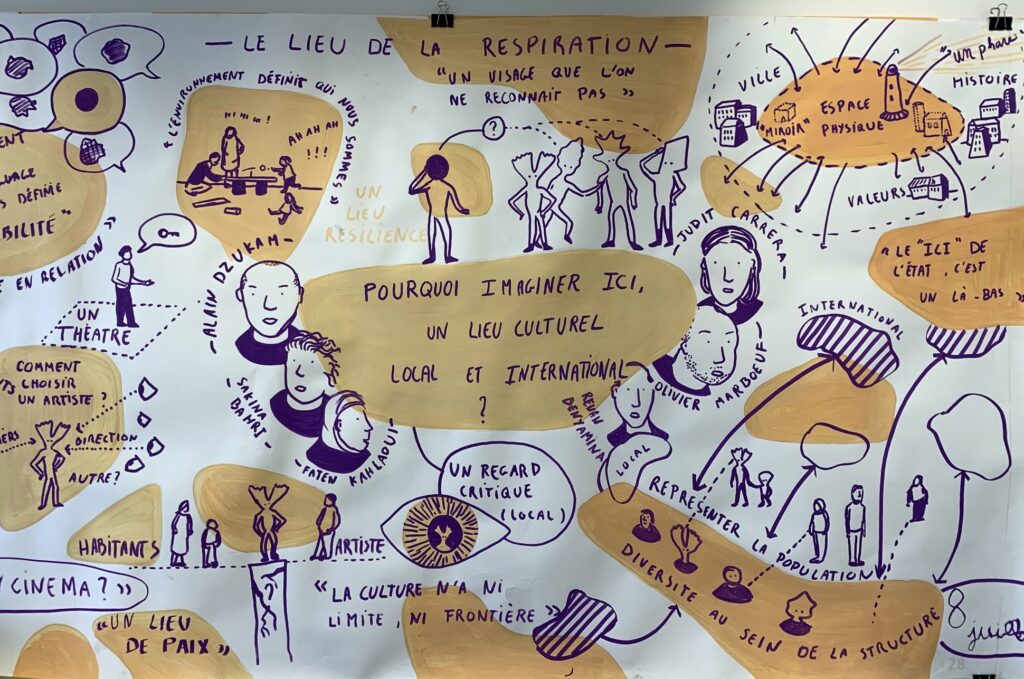 — LE LIEU DE LA RESPIRATION —
"UN VISAGE QUE L'ON
NE RECONNAIT PAS »
« L'ENVIRONNEMENT DÉFINIT QUI NOUS SOMMES »
HI HI HI !
AH AH AH
!!!
UN
LIEU
RÉSILIENCE
?
VILLE
"UN phare
HISTOIRE
"MIROIR"
ESPACE
PHYSIQUE
VALEURS
« LE "ICI" DE
L'ÉTAT, C'EST
UN LÀ-BAS »
S DÉFINIE
BILITÉ"
E EN RELATION »
UN
THÉÂTRE
— ALAIN DZUKAM —
SAKINA
BAHRI —
— FATEN KAHLAOUI —
POURQUOI IMAGINER ICI,
UN LIEU CULTUREL
LOCAL ET INTERNATIONAL
?
— JUDIT CARRERA —
OLIVIER MARBOEUF —
REDAN
BENYAMINA
INTERNATIONAL
LOCAL
COMMENT
CHOISIR
UN ARTISTE ?
DIRECTION
AUTRE ?
HABITANTS
ARTISTE
UN REGARD
CRITIQUE
(LOCAL)
REPRÉSENTER LA POPULATION
DIVERSITÉ AU SEIN DE LA STRUCTURE
CINEMA ? »
"UN LIEU
DE PAIX"
« LA CULTURE N'A NI
LIMITE, NI FRONTIÈRE »
8
28